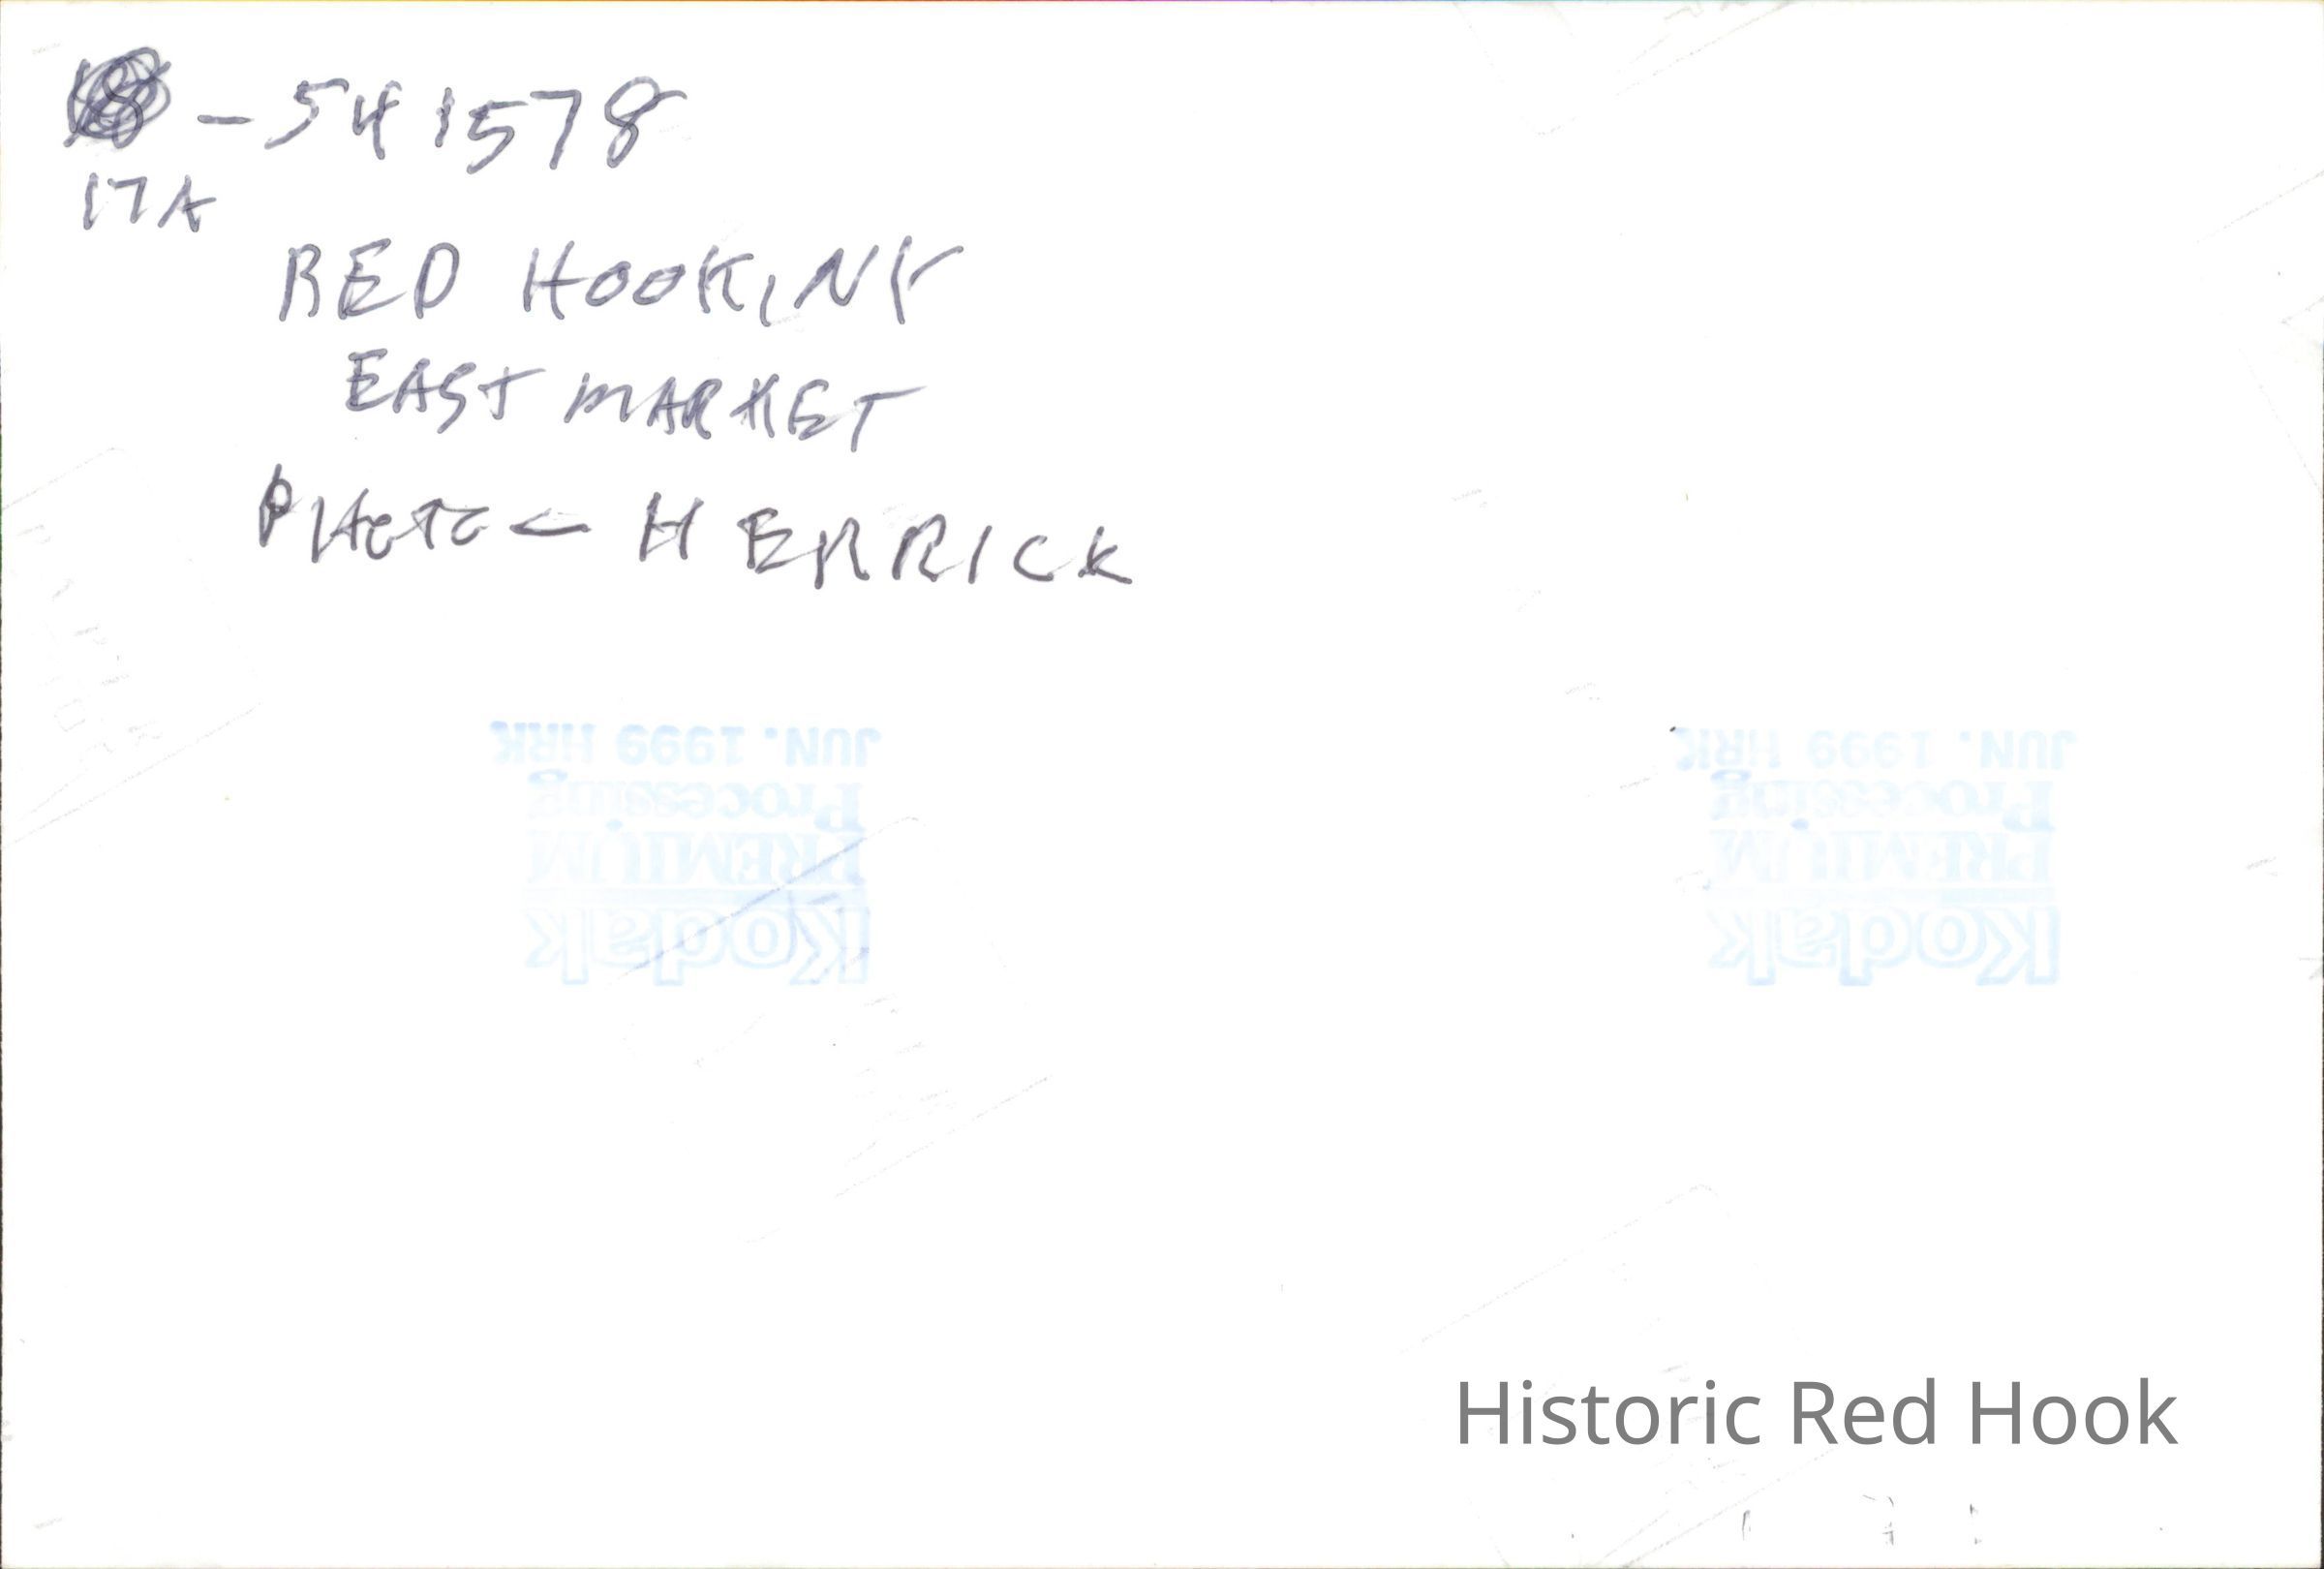 - 541578
17A
RED HOOK, NY
EAST MARKET
PHOTO - HERRICK
JUN. 1999 HRK
Processing
PREMIUM
Kodak
JUN. 1999 HRK
Processing
PREMIUM
Kodak
Historic Red Hook